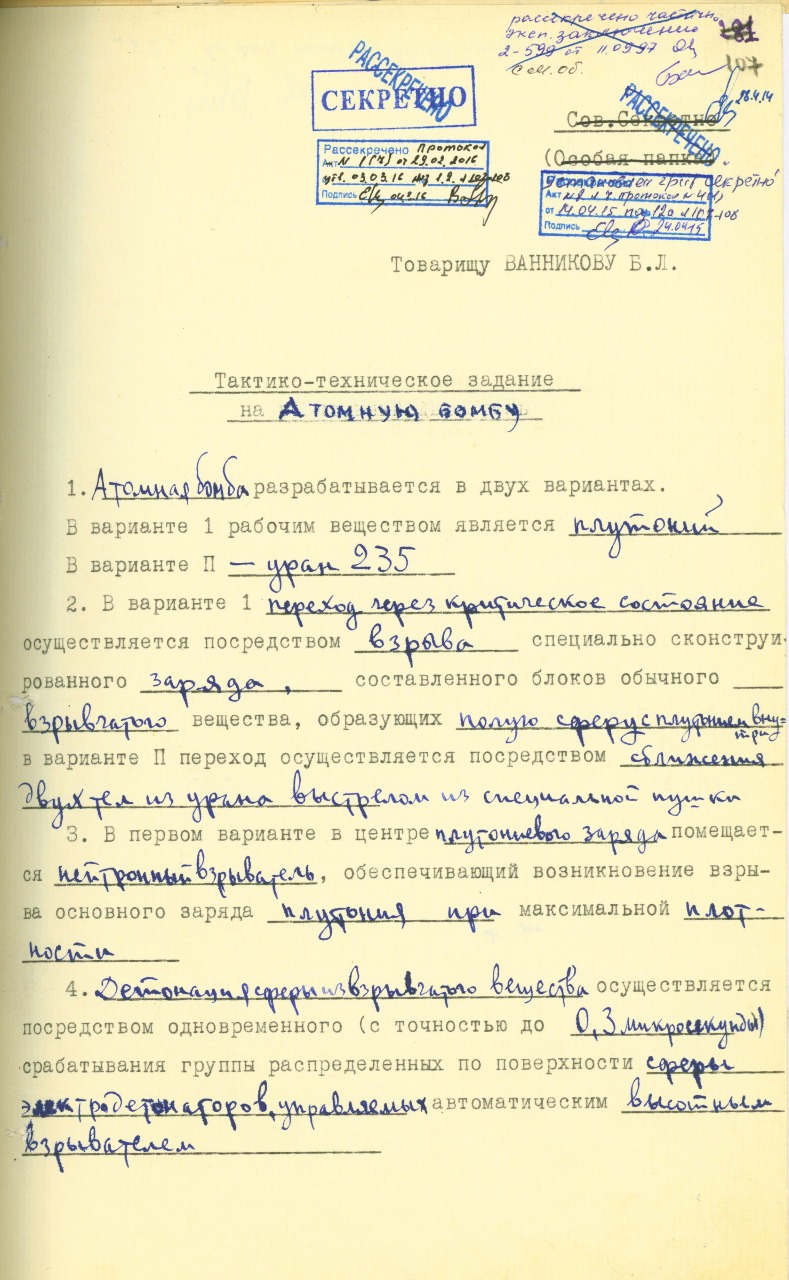 рассекречено частично
эксп. заключение
2-599 от 11.09.97
см. об.
181
107
РАССЕКРЕЧЕНО
СЕКРЕТНО
РАССЕКРЕЧЕНО
28.4.14
Сов.Секретно
(Особая папка)
установлен гриф "секретно"
Рассекречено Протокол
Акт N 1(7) от 29.02.2016
Подпись
Акт
от 14.04.15
Подпись 24.04.15
Товарищу ВАННИКОВУ Б.Л.
Тактико-техническое задание
на Атомную бомбу
1. Атомная бомба разрабатывается в двух вариантах.
В варианте 1 рабочим веществом является плутоний,
В варианте П — уран 235
2. В варианте 1 переход через критическое состояние
осуществляется посредством взрыва специально сконструи-
рованного заряда, составленного блоков обычного
взрывчатого вещества, образующих полую сферу с плутонием внутри
в варианте П переход осуществляется посредством сближения
двух тел из урана выстрелом из специальной пушки
3. В первом варианте в центре плутониевого заряда помещает-
ся нейтронный взрыватель, обеспечивающий возникновение взры-
ва основного заряда плутония при максимальной плот-
ности
4. Детонация сферы из взрывчатого вещества осуществляется
посредством одновременного (с точностью до 0,3 микросекунды)
срабатывания группы распределенных по поверхности сферы
электродетонаторов, управляемых автоматическим высотным
взрывателем